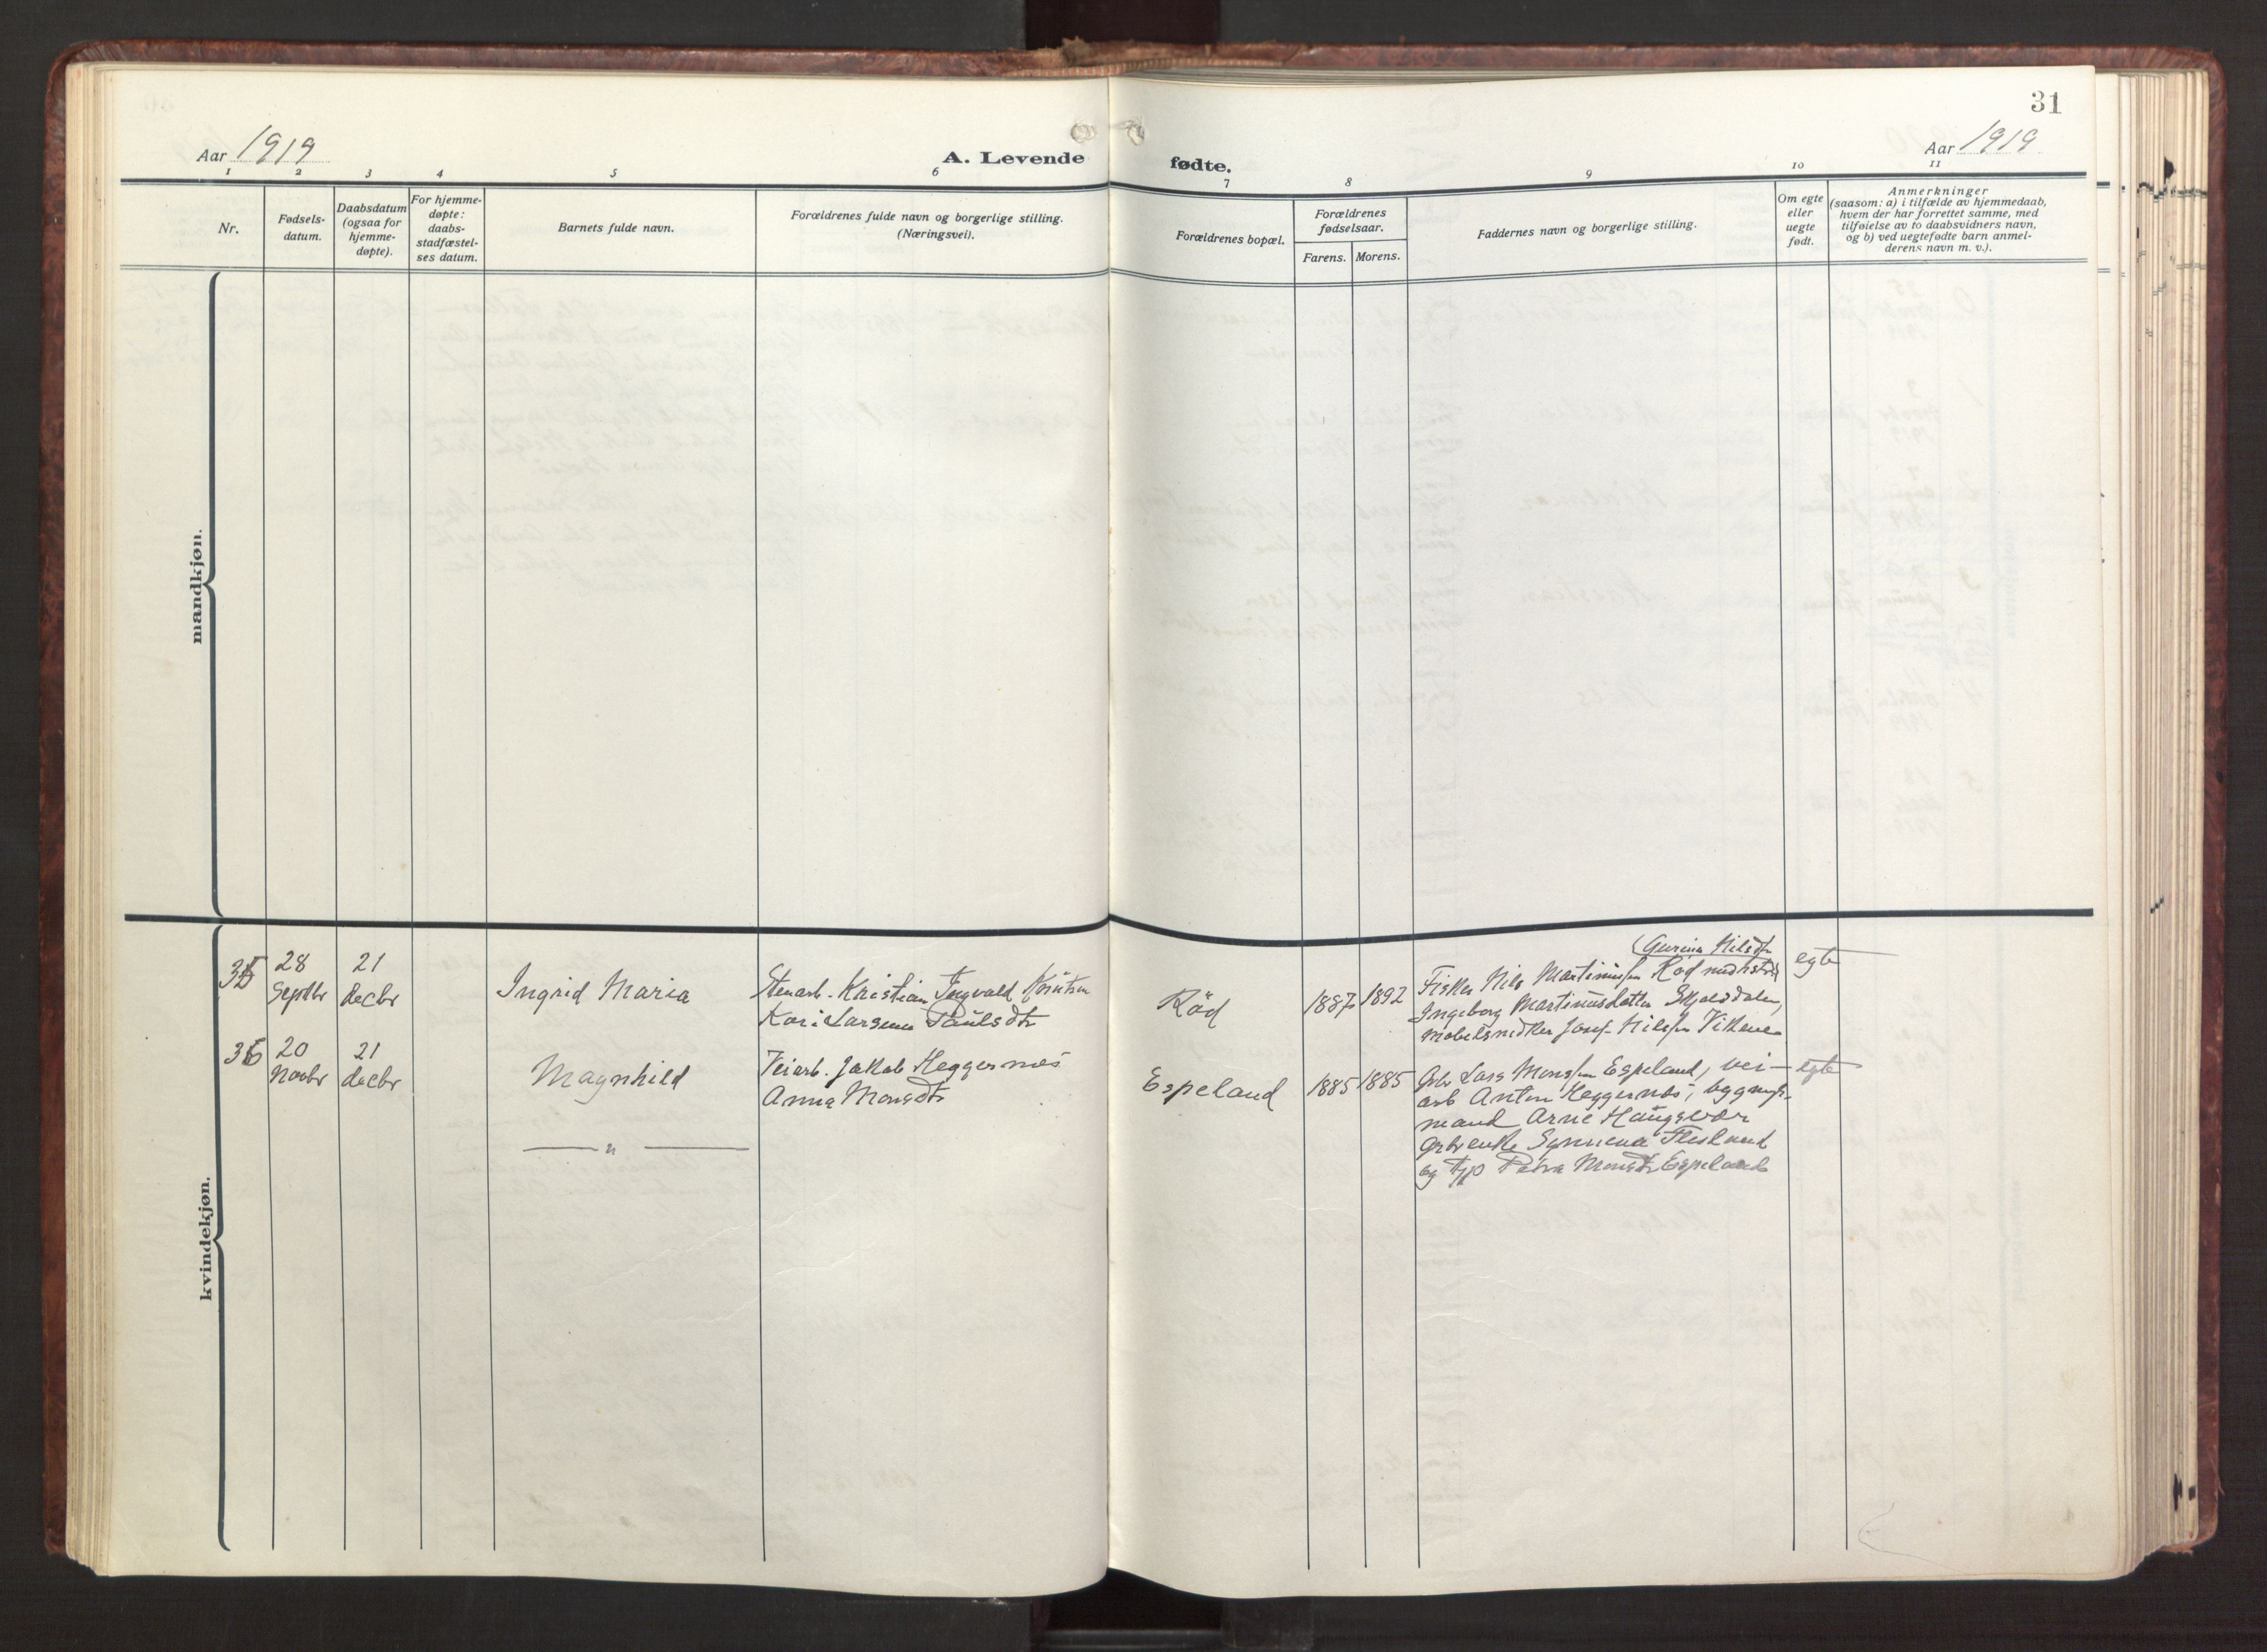 31
Aar 1919
A. Levende
fødte.
Aar 1919
1 2 3 4 5 6 7 8 9 10 11
Nr.
Fødsels-
datum.
Daabsdatum
(ogsaa for
hjemme-
døpte).
For hjemme-
døpte:
daabs-
stadfæstel-
ses datum.
Barnets fulde navn.
Forældrenes fulde navn og borgerlige stilling.
(Næringsvei).
Forældrenes bopæl.
Forældrenes
fødselsaar.
Farens. Morens.
Faddernes navn og borgerlige stilling.
Om egte
eller
uegte
født.
Anmerkninger
(saasom: a) i tilfælde av hjemmedaab,
hvem der har forrettet samme, med
tilføielse av to daabsvidners navn,
og b) ved uegtefødte barn anmel-
derens navn m. v.).
mandkjøn.
kvindekjøn.
35
28
Septbr
21
decbr
Ingrid Maria
Stenarb. Kristian Ingvald Knutsen
Kari Larsene Paulsdtr
Rød
1887 1892
(Gurina Nilsdtr
Fisker Nils Martinussen Rød
Ingeborg Martinusdatter Skjelsdalen,
møbelsnedker Josef Nilssen Vikene
egte
36
20
Novbr
21
decbr
Magnhild
Veiarb. Jakob Heggernæs
Anna Monsdtr
Espeland
1885 1885
Gbr Lars Monssen Espeland, vei-
arb Anton Heggernæs, bygnings-
mand Arne Haugsvær
gbrenke Synneva Flesland
og Petra Monsdtr Espeland
egte
— " —